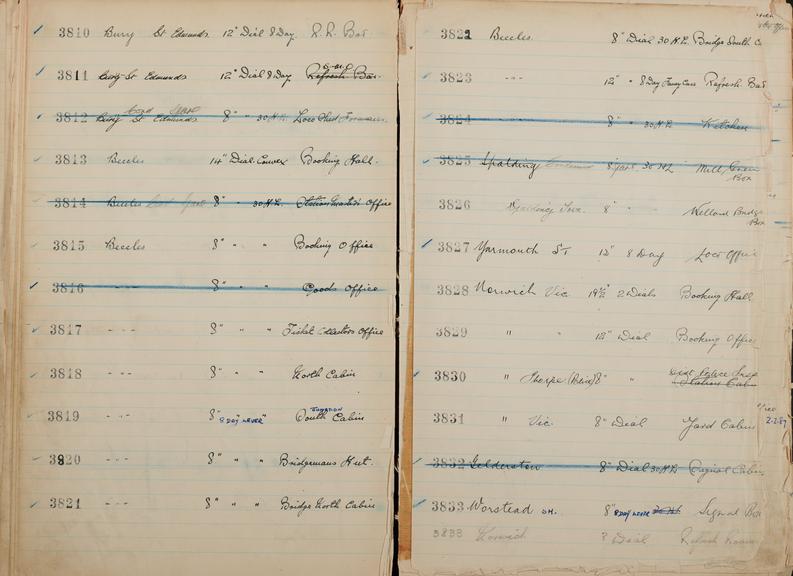 3810 Bury St Edmunds 12" Dial 8 Day. R. R. Bar
3811 Bury St Edmunds 12" Dial 8 Day Refresh Bar
3812 Bury St Edmunds 8" " 30 H.R. Loco Shed Foreman
3813 Beccles 14" Dial. Convex Booking Hall.
3814 Beccles 8" " 30 H.R. Station Master's Office
3815 Beccles 8" " " Booking Office
3816 8" " " Goods Office
3817 - - - 8" " " Ticket Collectors Office
3818 - - - 8" " " North Cabin
3819 - - - 8" 8 DAY LEVER " South JUNCTION Cabin
3820 - - - 8" " " Bridgemans Hut.
3821 - - - 8" " " Bridge North Cabin
3822 Beccles. 8" Dial 30 H.R. Bridge South C
3823 - - - 12" " 8 Day Refresh Bar
3824 8" " 30 H.R. Kitchen
3825 Spalding 30 H.R. Mill Green
Box
3826 Spalding 8" " Welland Bridge
Box
3827 Yarmouth ST 12" 8 Day Loco Office
3828 Norwich Vic 19½" 2 Dials Booking Hall
3829 " " 12" Dial Booking Office
3830 " Thorpe 8" " Station Cabin
3831 " Vic. 8" Dial Yard Cabin
2-2-89
3832 Geldeston 8" Dial 30 H.R. Signal Cabin
3833 Worstead 8" 8 DAY LEVER 30 H.R. Signal Box
3838 Norwich 8 Dial Refresh Room